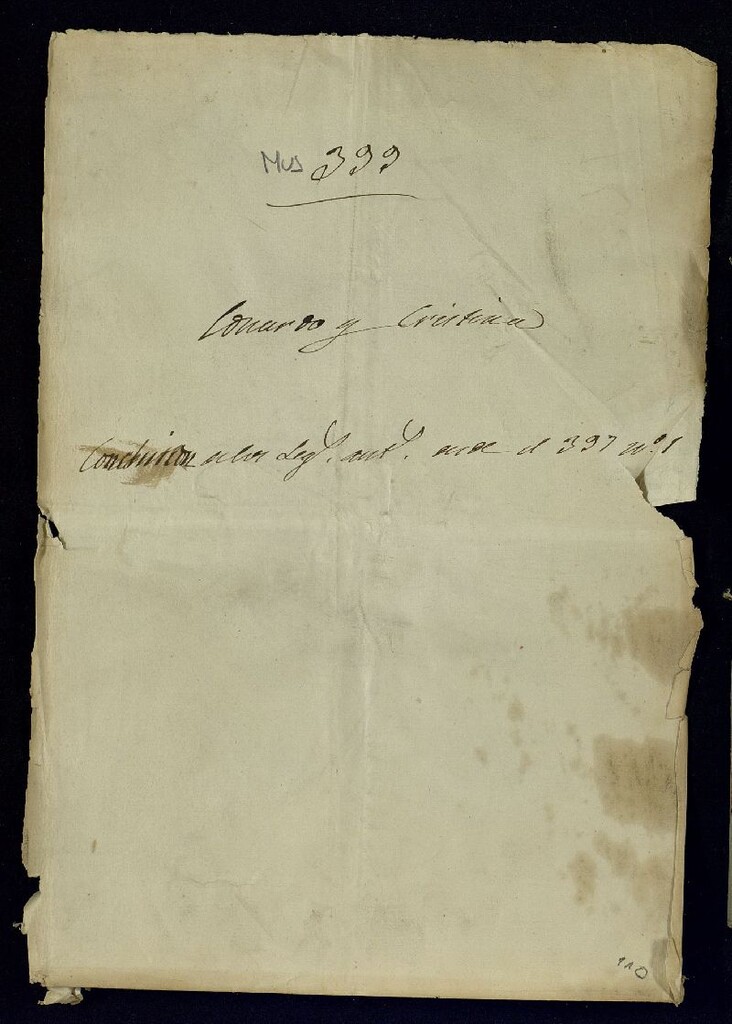 Mus 399
Eduardo y Cristina
Conclusion Leg.s ant.s el 397 nº. 1